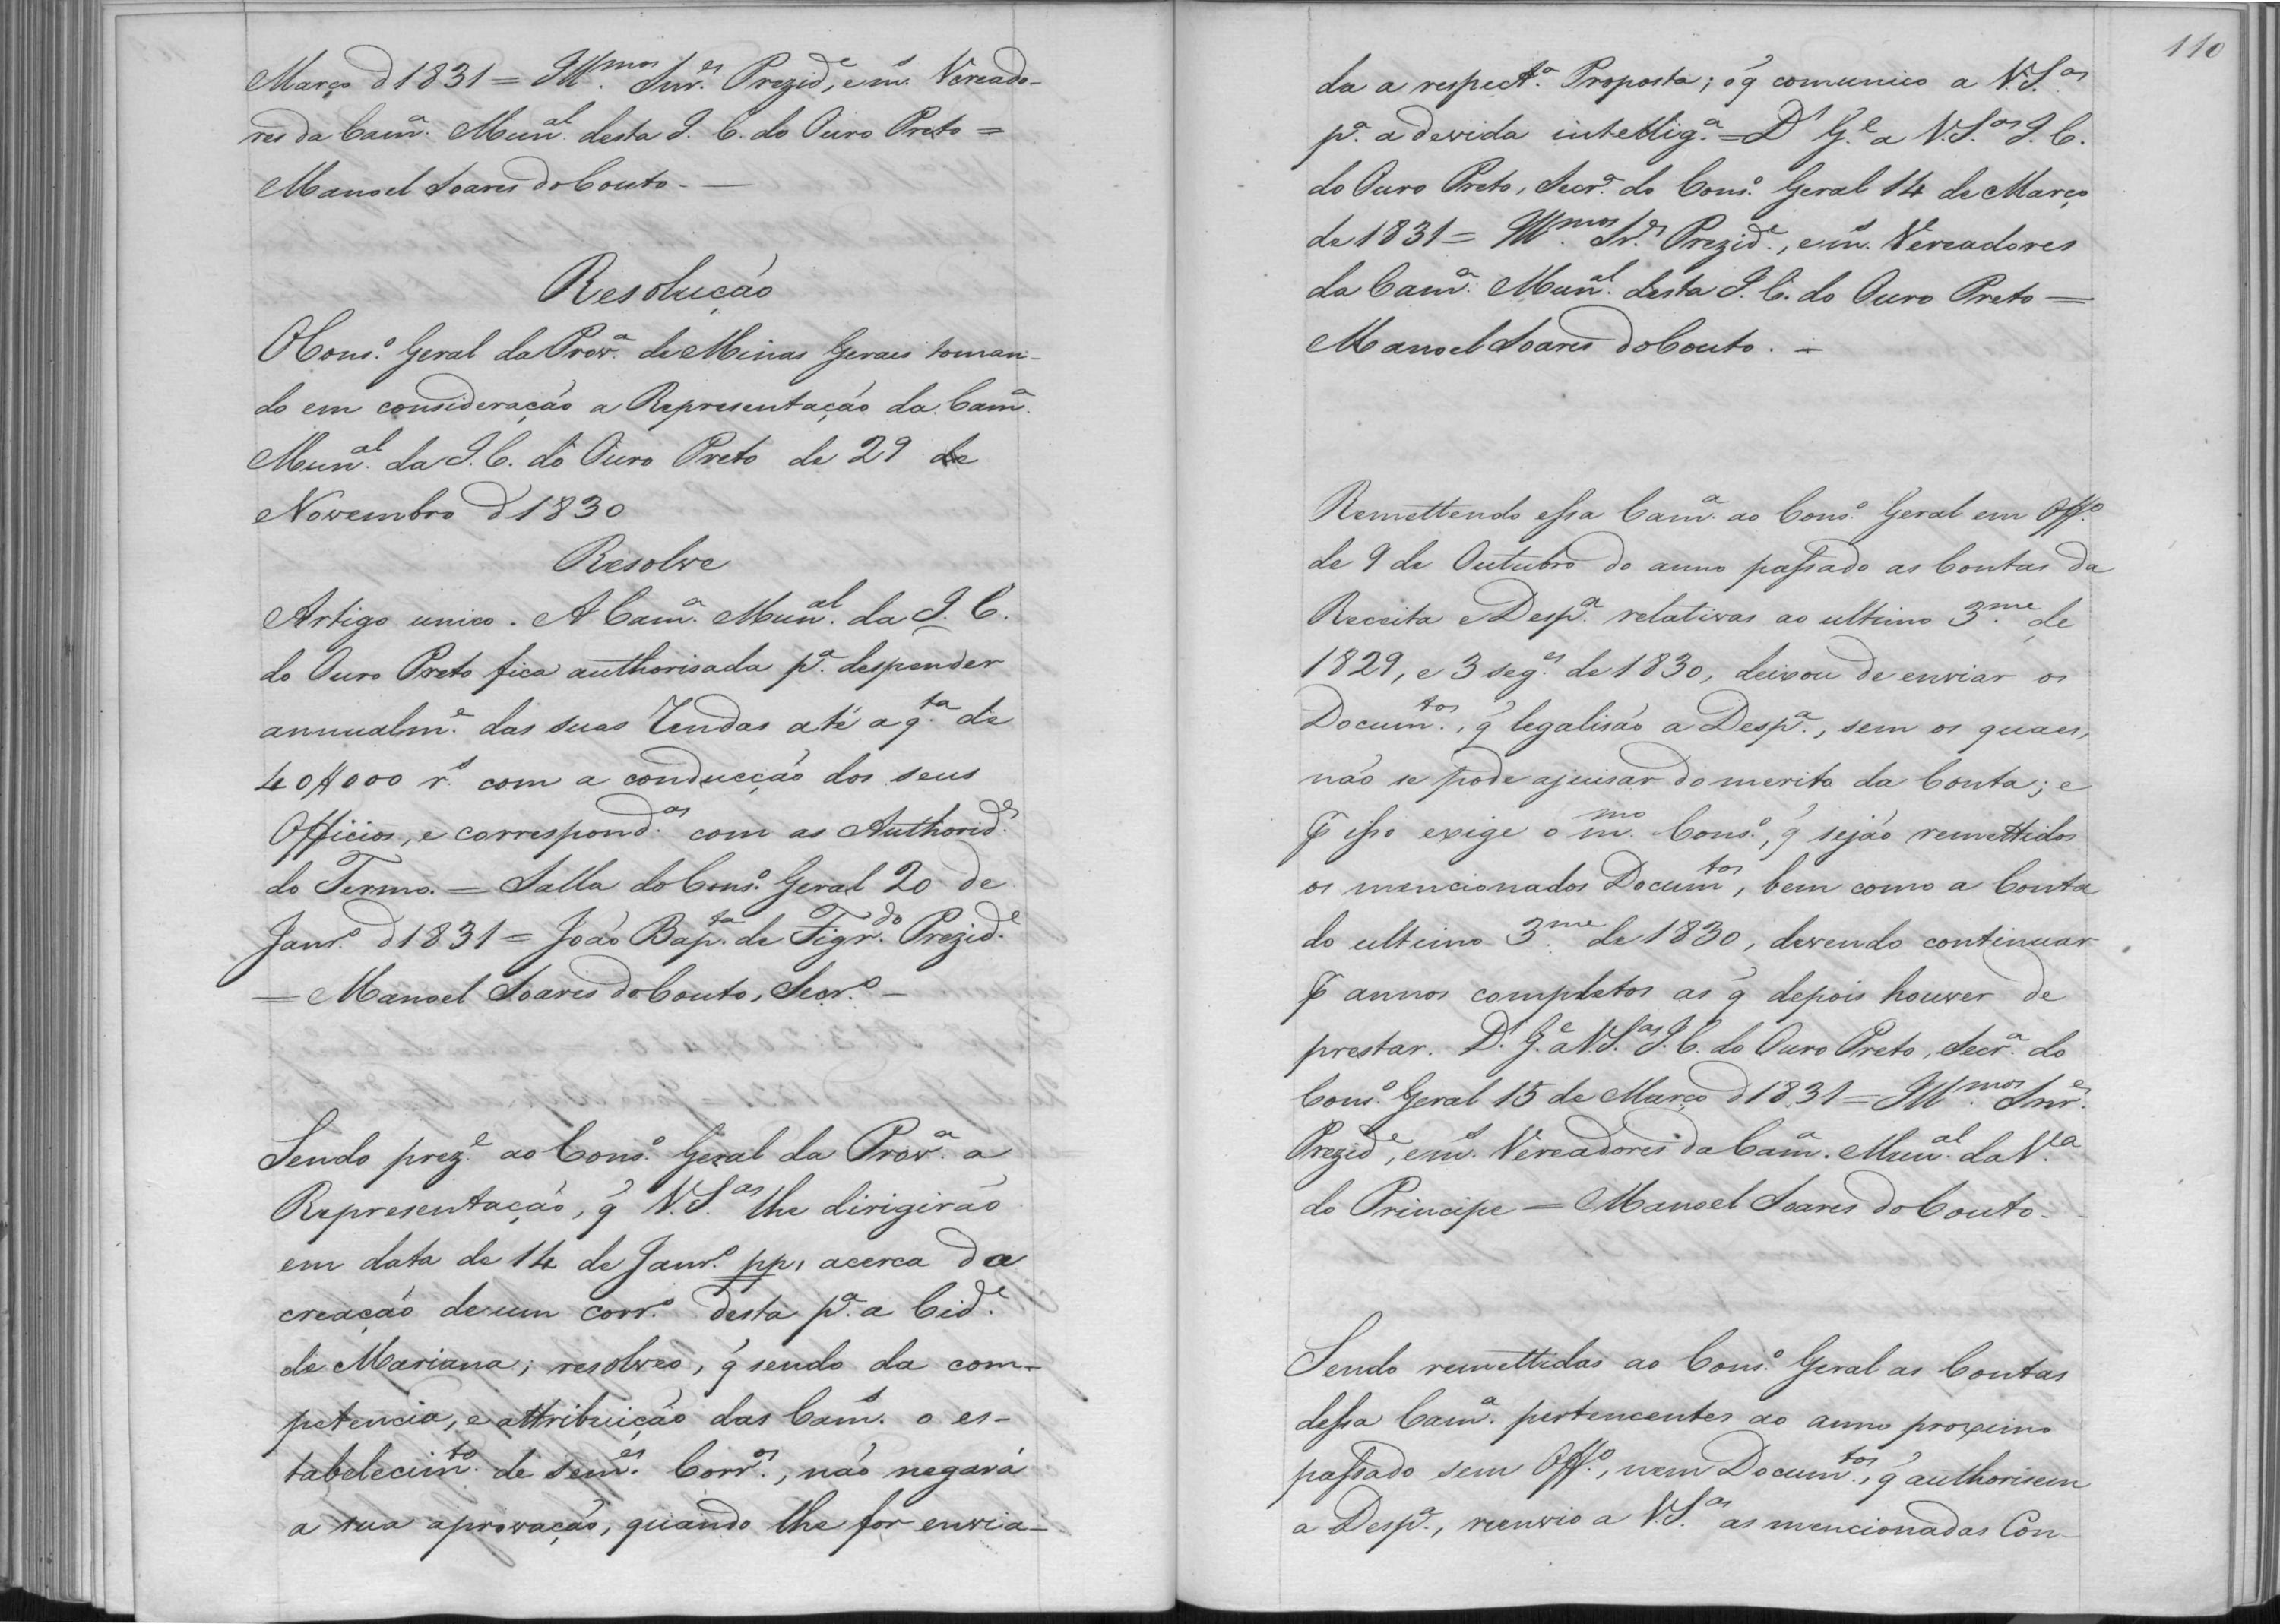 Março d 1831 = Ill.mos Snr.es Prezid.e, e m.s Vereado-
res da Cam.a Mun.al desta I. C. do Ouro Preto =
Manoel Soares do Couto. —
Resolução
O Cons.o Geral da Prov.a de Minas Geraes toman-
do em consideração a Representação da Cam.a
Mun.al da I. C. do Ouro Preto de 29 de
Novembro d 1830
Resolve
Artigo unico. A Cam.a Mun.al da I. C.
do Ouro Preto fica authorisada p.a despender
annualm.e das suas Rendas até a q.ta de
40$000 r.s com a conducção dos seus
Officios, e correspond.as com as Authorid.es
do Termo. = Salla do Cons.o Geral 20 de
Janr.o d 1831 = João Bap.ta de Figr.do Prezid.e
= Manoel Soares do Couto, Secr.o —
Sendo prez.e ao Cons.o Geral da Prov.a a
Representação, q̃ V.S.as lhe dirigirão
em data de 14 de Janr.o pp, acerca da
creação de um corr.o desta p.a a Cid.e
de Mariana; resolveo, q̃ sendo da com-
petencia, e attribuição das Cam.s o es-
tabelecim.to de sem.es Corr.os, não negará
a sua aprovação, quando lhe for envia-
110
da a respect.a Proposta; o q̃ comunico a V.S.as
p.a a devida intellig.a = D.s G.e a V.S.as I. C.
do Ouro Preto, Secr.a do Cons.o Geral 14 de Março
de 1831 = Ill.mos Sr.es Prezid.e, e m.s Vereadores
da Cam.a Mun.al desta I. C. do Ouro Preto =
Manoel Soares do Couto. —
Remettendo essa Cam.a ao Cons.o Geral em Off.o
de 9 de Outubro do anno passado as Contas da
Receita e Desp.a relativas ao ultimo 3.me de
1829, e 3 seg.es de 1830, deixou de enviar os
Docum.tos, q̃ legalisão a Desp.a, sem os quaes,
não se pode ajuisar do merito da Conta; e
ꝑ isso exige o m.mo Cons.o, q̃ sejão remettidos
os mencionados Docum.tos, bem como a Conta
do ultimo 3.me de 1830, devendo continuar
ꝑ annos completos as q̃ depois houver de
prestar. D.s G.e a V.S.as I. C. do Ouro Preto, Secr.a do
Cons.o Geral 15 de Março d 1831 = Ill.mos Snr.es
Prezid.e, e m.s Vereadores da Cam.a Mun.al da V.la
do Principe = Manoel Soares do Couto. —
Sendo remettidas ao Cons.o Geral as Contas
dessa Cam.a pertencentes ao anno proximo
passado sem Off.o, nem Docum.tos, q̃ authorisem
a Desp.a, reenvio a V.S.as as mencionadas Con-